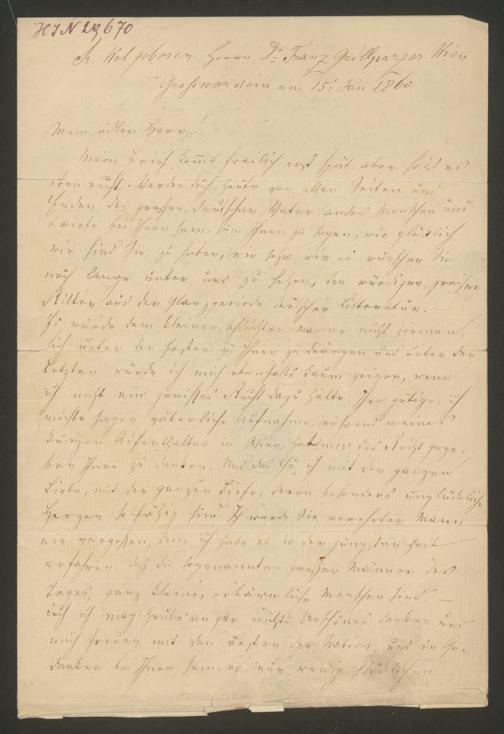 HIN 29,670
Sr Wolgeboren Herrn Dr Franz Grillparzer Wien
Großwardein am 15t Jän 1860
Mein edler Herr!
Mein Brief kommt freilich erst spät, aber so ist es
eben recht. Werden doch heute von allen Seiten und
Enden des großen, deutschen Vaterlandes Menschen und
bei Ihnen sein, um Ihnen zu sagen, wie glücklich
wir sind Sie zu haben, wie sehr wir es wünschen Sie
noch lange unter uns zu sehen, den würdigen, greisen
Ritter aus der Glanzperiode deutscher Literatur. –
Es würde dem kleinen, schlichten Manne nicht ziemen
sich unter den Ersten zu Ihnen zu drängen und unter den
Letzten würde ich mich ebenfalls kaum zeigen, wenn
ich nicht ein gewisses Recht dazu hätte. Ihre gütige, ich
möchte sagen väterliche Aufnahme, während meines
kurzen Aufenthaltes in Wien, hat mir das Recht gege-
ben Ihnen zu danken. Und das thu ich mit der ganzen
Liebe, mit der ganzen Tiefe, deren besonders unglückliche
Herzen so fähig sind. Ich werde Sie verehrten Mann,
nie vergessen, denn ich habe es in der jüngsten Zeit
erfahren daß die sogenannten großen Männer des
Tages, ganz kleine, erbärmliche Menschen sind –
doch ich mag heute an gar nichts Unschönes denken und
mich freuen mit den Besten der Nation, und in Ge-
danken bei Ihnen sein, wenig